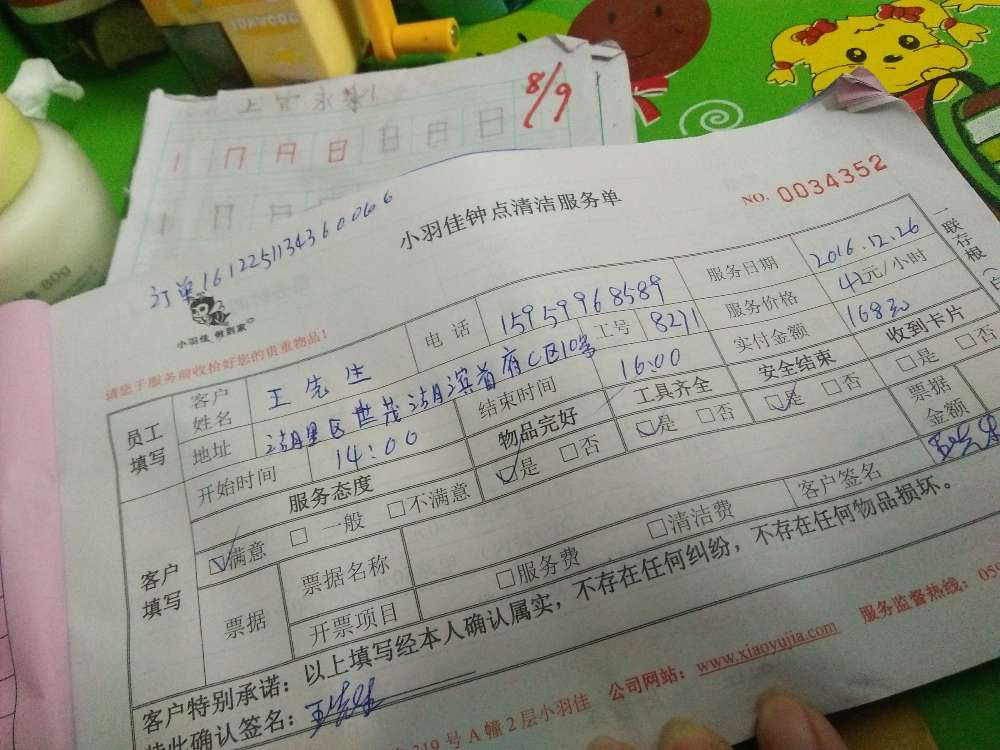 8/9
1 日 月 日 日 日 日
订单161225113436 0066
小羽佳钟点清洁服务单
NO. 0034352
一联存根
小羽佳 俐到家
请您于服务前收拾好您的贵重物品!
员工填写
客户姓名 王先生 电话 15959968589 服务日期 2016.12.26
地址 湖里区世茂湖滨首府C区10号 工号 8271 服务价格 42元/小时
开始时间 14:00 结束时间 16:00 实付金额 168元
客户填写
服务态度 物品完好 工具齐全 安全结束 收到卡片
☑满意 □一般 □不满意 ☑是 □否 ☑是 □否 ☑是 □否 □是 □否
票据 票据名称 票据金额
开票项目 □服务费 □清洁费 客户签名
客户特别承诺:以上填写经本人确认属实,不存在任何纠纷,不存在任何物品损坏。
特此确认签名:
319号A幢2层小羽佳 公司网站:www.xiaoyujia.com 服务监督热线:059